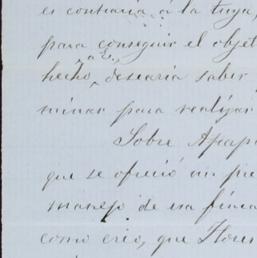 es contraria á la tuya,
para conseguir el objet
hecho, desearia saber
minar para realizar
Sobre Apap
que se ofreció un pre
manejo de esa finca
como creo, que Flores